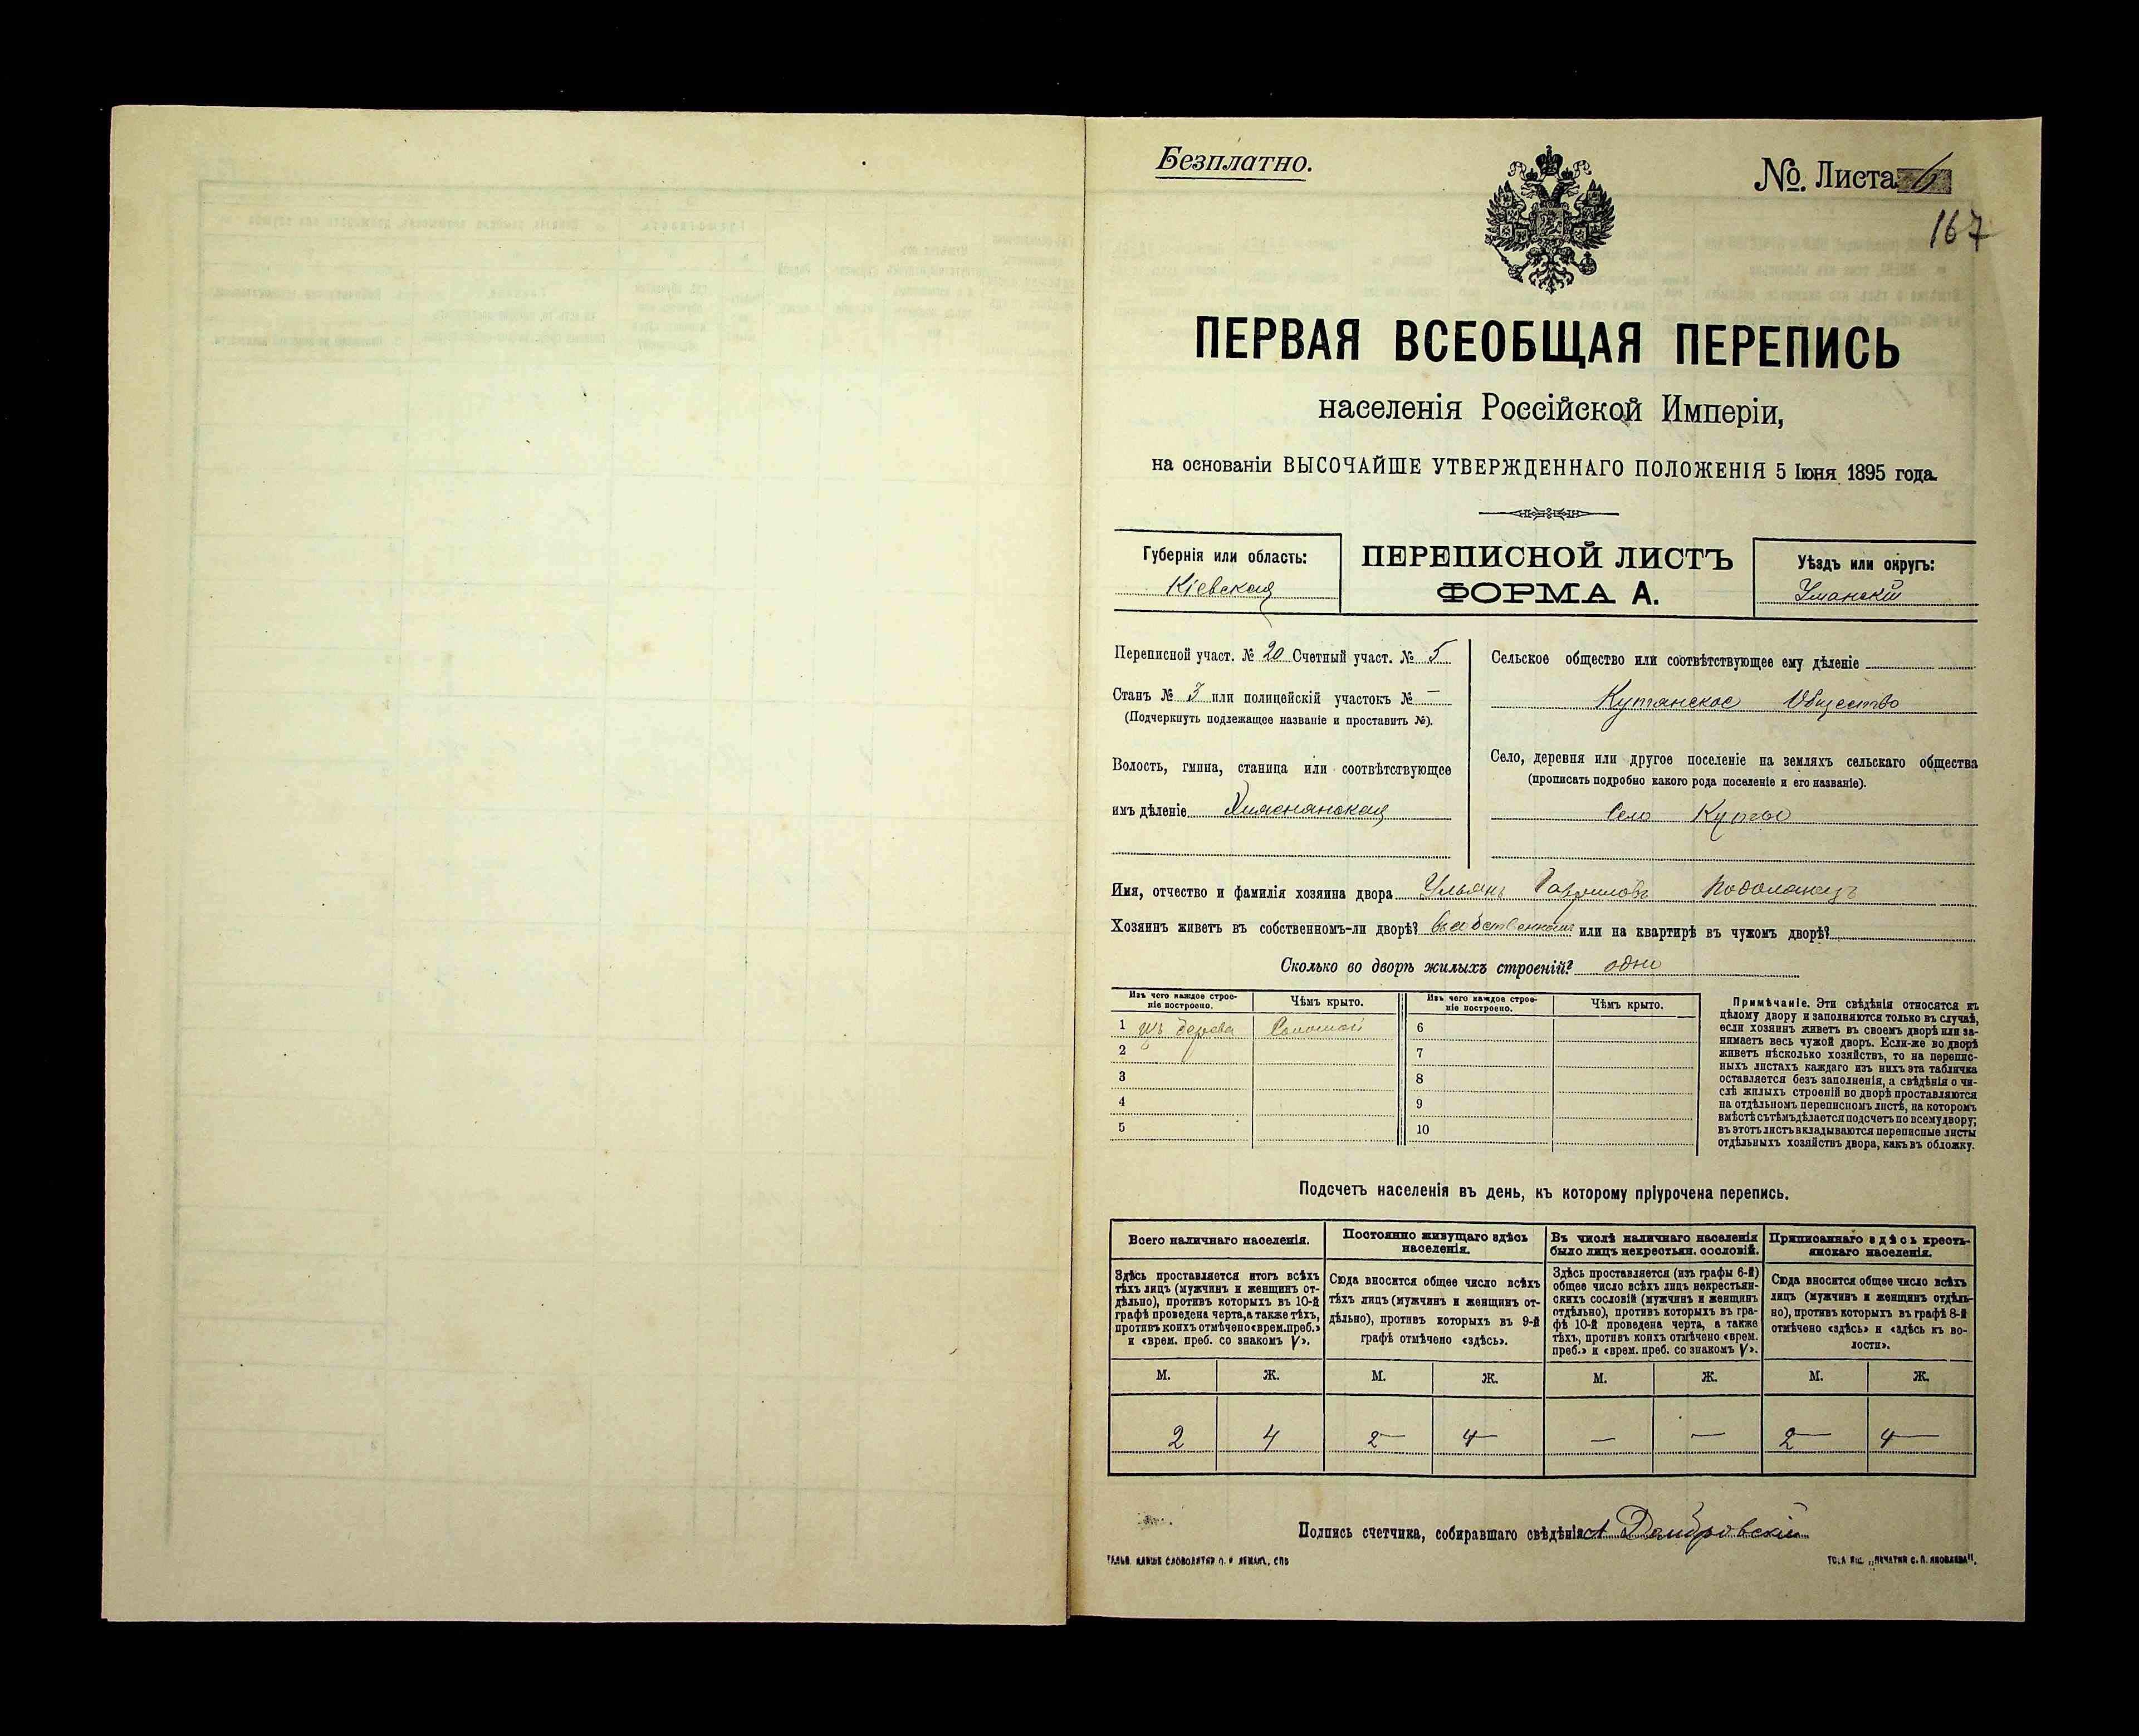 Безплатно.
№. Листа 6
167
ПЕРВАЯ ВСЕОБЩАЯ ПЕРЕПИСЬ
населенія Россійской Имперіи,
на основаніи ВЫСОЧАЙШЕ УТВЕРЖДЕННАГО ПОЛОЖЕНІЯ 5 Іюня 1895 года.
Губернія или область:
Кіевская
ПЕРЕПИСНОЙ ЛИСТЪ
ФОРМА А.
Уѣздъ или округъ:
Уманскій
Переписной участ. № 20 Счетный участ. № 5
Станъ № 3 или полицейскій участокъ № —
(Подчеркнуть подлежащее названіе и проставить №).
Волость, гмина, станица или соотвѣтствующее
имъ дѣленіе
Сельское общество или соотвѣтствующее ему дѣленіе
Кутянское Общество
Село, деревня или другое поселеніе на земляхъ сельскаго общества
(прописать подробно какого рода поселеніе и его названіе).
Село Куты
Имя, отчество и фамилія хозяина двора Ульянъ Гавриловъ Подолянецъ
Хозяинъ живетъ въ собственномъ-ли дворѣ? въ собственномъ или на квартирѣ въ чужомъ дворѣ?
Сколько во дворѣ жилыхъ строеній? одно
Изъ чего каждое строе-
ніе построено.
Чѣмъ крыто.
Изъ чего каждое строе-
ніе построено.
Чѣмъ крыто.
1 изъ дерева Соломой 6
2 7
3 8
4 9
5 10
Примѣчаніе. Эти свѣдѣнія относятся къ
цѣлому двору и заполняются только въ случаѣ,
если хозяинъ живетъ въ своемъ дворѣ или за-
нимаетъ весь чужой дворъ. Если-же во дворѣ
живетъ нѣсколько хозяйствъ, то на перепис-
ныхъ листахъ каждаго изъ нихъ эта табличка
оставляется безъ заполненія, а свѣдѣнія о чи-
слѣ жилыхъ строеній во дворѣ проставляются
на отдѣльномъ переписномъ листѣ, на которомъ
вмѣстѣ съ тѣмъ дѣлается подсчетъ по всему двору;
въ этотъ листъ вкладываются переписные листы
отдѣльныхъ хозяйствъ двора, какъ въ обложку.
Подсчетъ населенія въ день, къ которому пріурочена перепись.
Всего наличнаго населенія.
Постоянно живущаго здѣсь
населенія.
Въ числѣ наличнаго населенія
было лицъ некрестьян. сословій.
Приписаннаго здѣсь кресть-
янскаго населенія.
Здѣсь проставляется итогъ всѣхъ
тѣхъ лицъ (мужчинъ и женщинъ от-
дѣльно), противъ которыхъ въ 10-й
графѣ проведена черта, а также тѣхъ,
противъ коихъ отмѣчено «врем. преб.»
и «врем. преб. со знакомъ V».
Сюда вносится общее число всѣхъ
тѣхъ лицъ (мужчинъ и женщинъ от-
дѣльно), противъ которыхъ въ 9-й
графѣ отмѣчено «здѣсь».
Здѣсь проставляется (изъ графы 6-й)
общее число всѣхъ лицъ некрестьян-
скихъ сословій (мужчинъ и женщинъ
отдѣльно), противъ которыхъ въ гра-
фѣ 10-й проведена черта, а также
тѣхъ, противъ коихъ отмѣчено «врем.
преб.» и «врем. преб. со знакомъ V».
Сюда вносится общее число всѣхъ
лицъ (мужчинъ и женщинъ отдѣль-
но), противъ которыхъ въ графѣ 8-й
отмѣчено «здѣсь» и «здѣсь къ во-
лости».
М. Ж. М. Ж. М. Ж. М. Ж.
2 4 2— 4— — — 2— 4—
Подпись счетчика, собиравшаго свѣдѣнія А Домбровскій